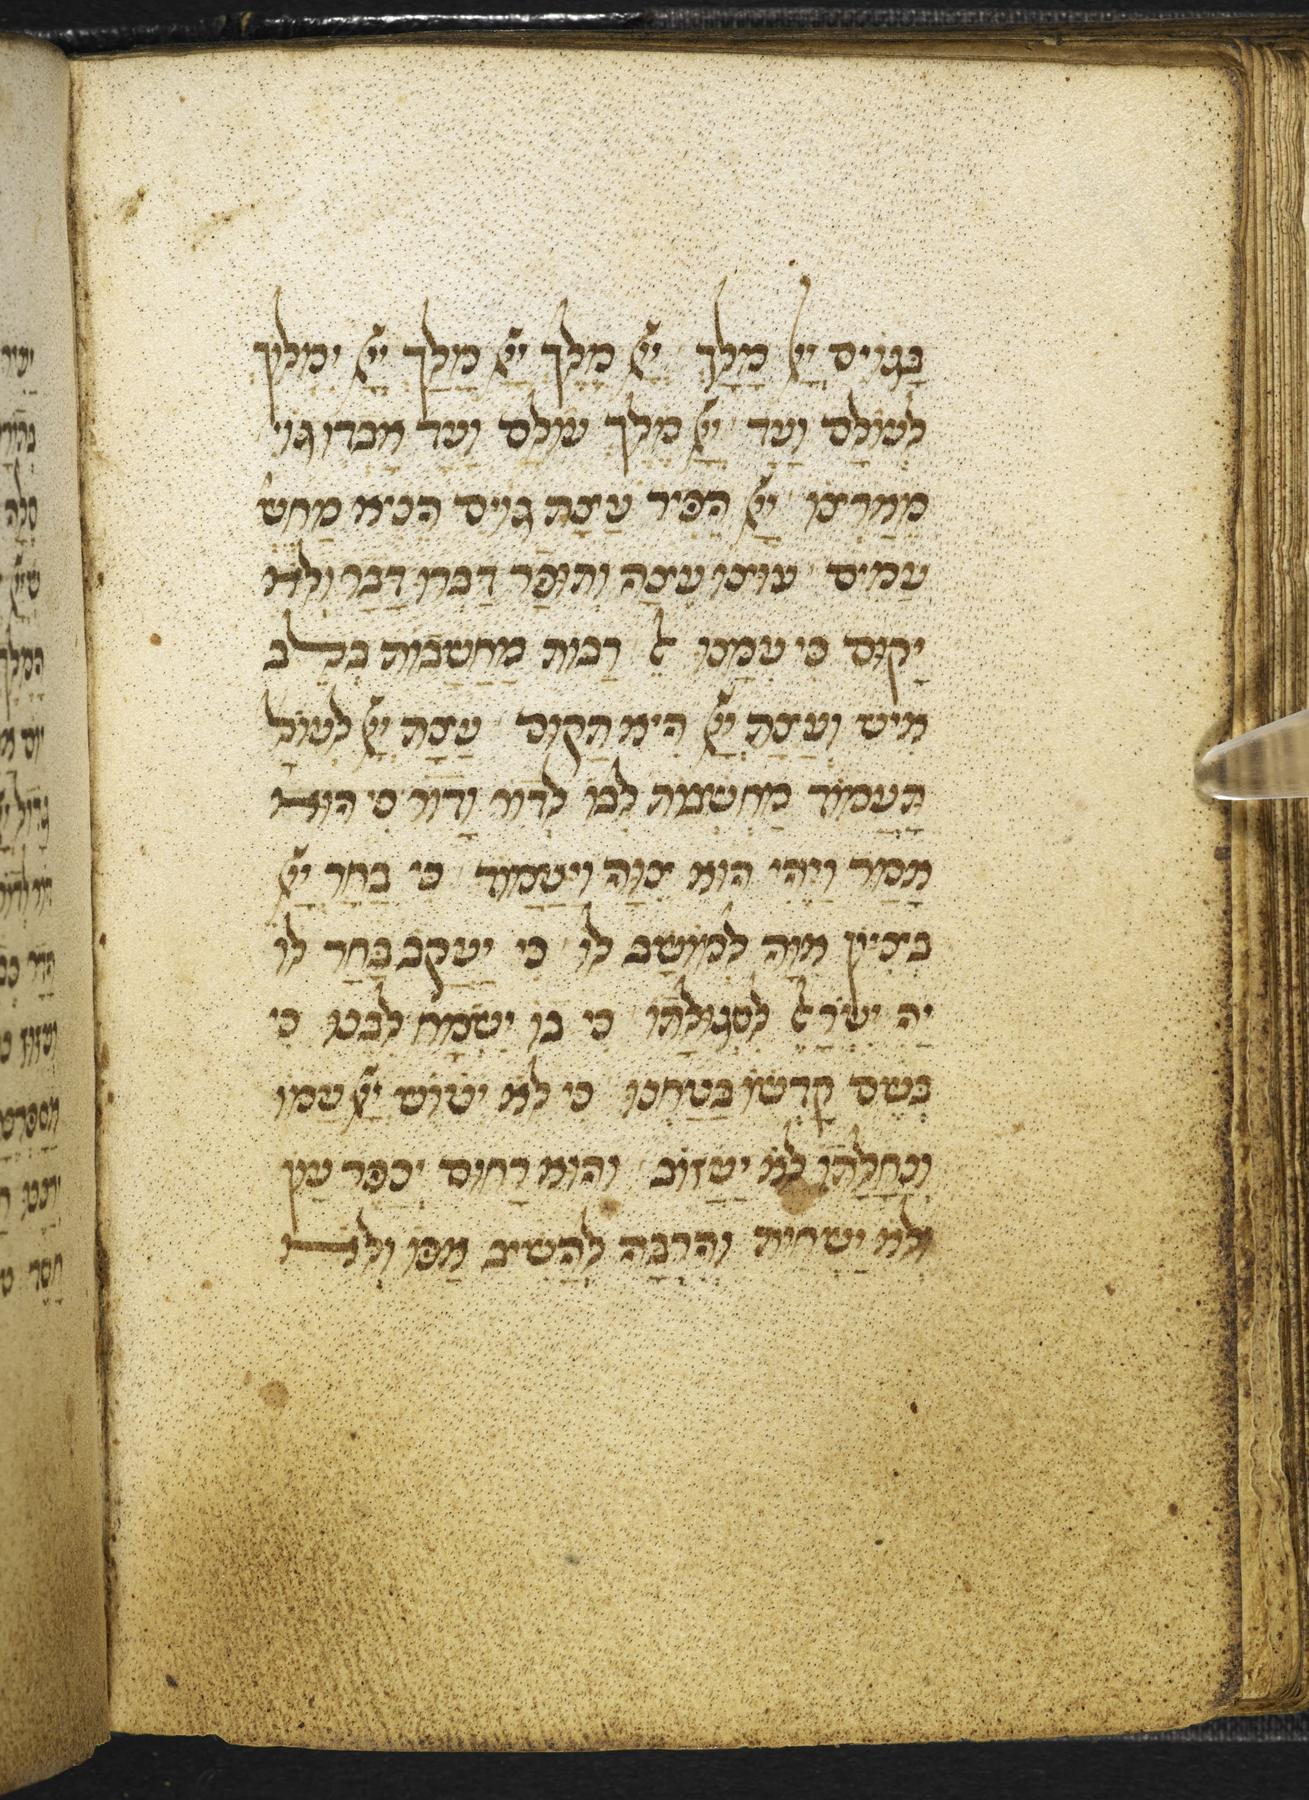 בַּגּוֹיִם יָיָ מָלָךְ יְיָ מֶלֶךְ יְיָ מָלַךְ יְיָ יִמְלוֹךְ
לְעוֹלָם וָעֶד יְיָ מֶלֶךְ עוֹלָם וָעֶד אבדו גוים
מֵאַרְצוֹ יְיָ הֵפִיר עֲצַת גּוֹיִם הֵנִיא מַחְשׁ
עַמִּים עוּצוּ עֵצָה וְתוּפָר דַּבְּרוּ דָבָר וְלֹא
יָקוּם כִּי עִמָּנוּ אֵל רַבּוֹת מַחֲשָׁבוֹת בְּלֶב
אִישׁ וַעֲצַת יְיָ הִיא תָקוּם עֲצַת יְיָ לְעוֹלָ
תַּעֲמוֹד מַחְשְׁבוֹת לִבּוֹ לְדוֹר וָדוֹר כִּי הוּא
אָמַר וַיֶּהִי הוּא צִוָּה וַיַּעֲמוֹד כִּי בָחַר יְיָ
בְּצִיּוֹן אִוָּהּ לְמוֹשָׁב לוֹ כִּי יַעֲקֹב בָּחַר לוֹ
יָהּ יִשְׂרָאֵל לִסְגוּלָּתוֹ כִּי בוֹ יִשְׂמַח לִבֵּנוּ כִּי
בְשֵׁם קָדְשׁוֹ בָּטַחְנוּ כִּי לֹא יִטּוֹשׁ יְיָ עַמּוֹ
וְנַחֲלָתוֹ לֹא יַעֲזוֹב וְהוּא רַחוּם יְכַפֵּר עָוֹן
וְלֹא יַשְׁחִית וְהִרְבָּה לְהָשִׁיב אַפּוֹ וְלֹא